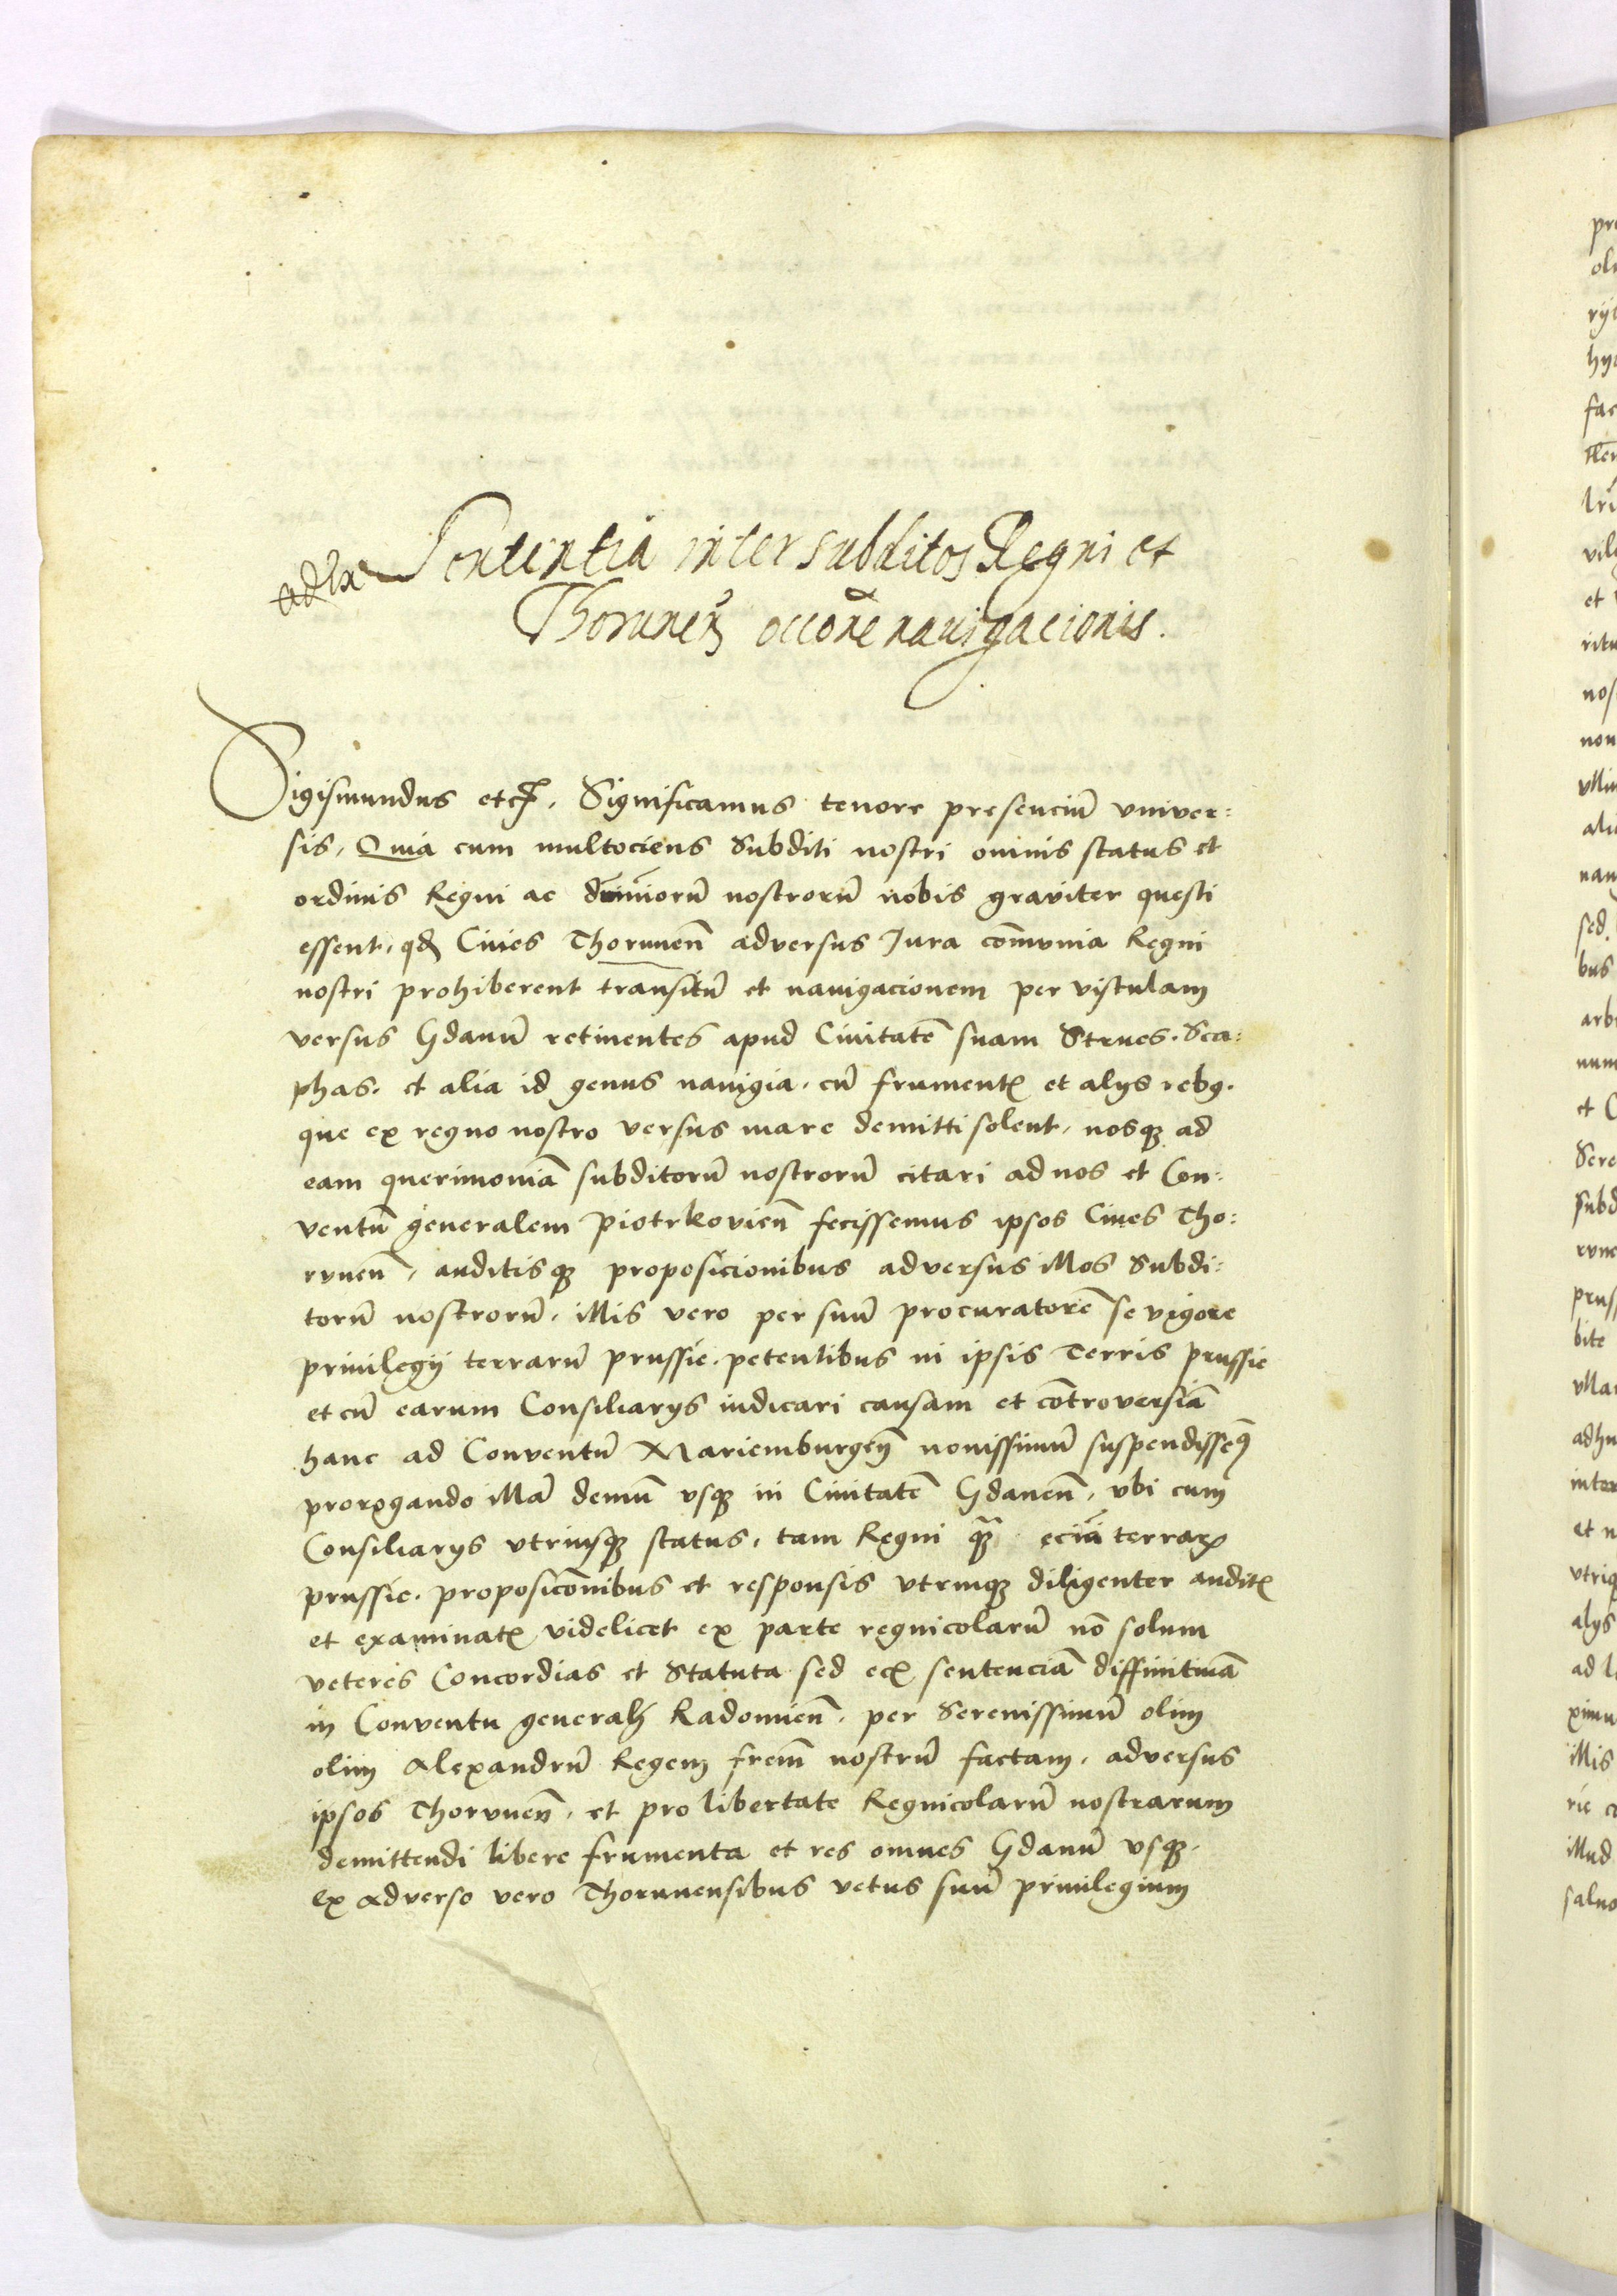 Sententia inter subditos Regni et
Thorunen̄ occōne navigacionis.
Sigismundus etc̄. Significamus tenore presenciū vniver:
sis, Quia cum multociens Subditi nostri omnis status et
ordinis Regni ac dn̄iniorū nostrorū nobis graviter questi
essent, qd Ciues Thorunen̄ adversus Jura com̄vnia Regni
nostri prohiberent transitū et nauigacionem per vistulam
versus Gdanū retinentes apud Ciuitatē suam Strues. Sca:
phas. et alia id genus nauigia, cū frument(is) et alys rebq.
que ex regno nostro versus mare demitti solent, nosq ad
eam querimoniā subditorū nostrorū citari ad nos et Con:
ventū generalem piotrkovien̄ fecissemus ipsos Ciues Tho:
rvnen̄, auditisq proposicionibus adversus illos Subdi:
torū nostrorū, illis vero per suū procuratorē se vigore
priuilegij terrarū prussie. petentibus in ipsis Terris prussie
et cū earum Consiliarys iudicari causam et cōtroversiā
hanc ad Conventū Mariemburgen̄ nouissimū suspendissem9
prorogando illā demū vsq in Ciuitatē Gdanen̄, vbi cum
Consiliarys vtriusq status, tam Regni q̄ȝ eciā terrarꝝ
prussie. proposicōnibus et responsis vtrinq diligenter audit(is)
et examinat(is) videlicet ex parte regnicolarū nō solum
veteres Concordias et Statuta sed ec(iam) sentenciā diffinitiuā
in Conventu generali Radomien̄. per Serenissimū olim
olim Alexandrū Regem frēm nostrū factam, adversus
ipsos Thorunen̄, et pro libertate Regnicolarū nostrarum
demittendi libere frumenta et res omnes Gdanū vsq.
Ex adverso vero Thorunensibus vetus suū priuilegium